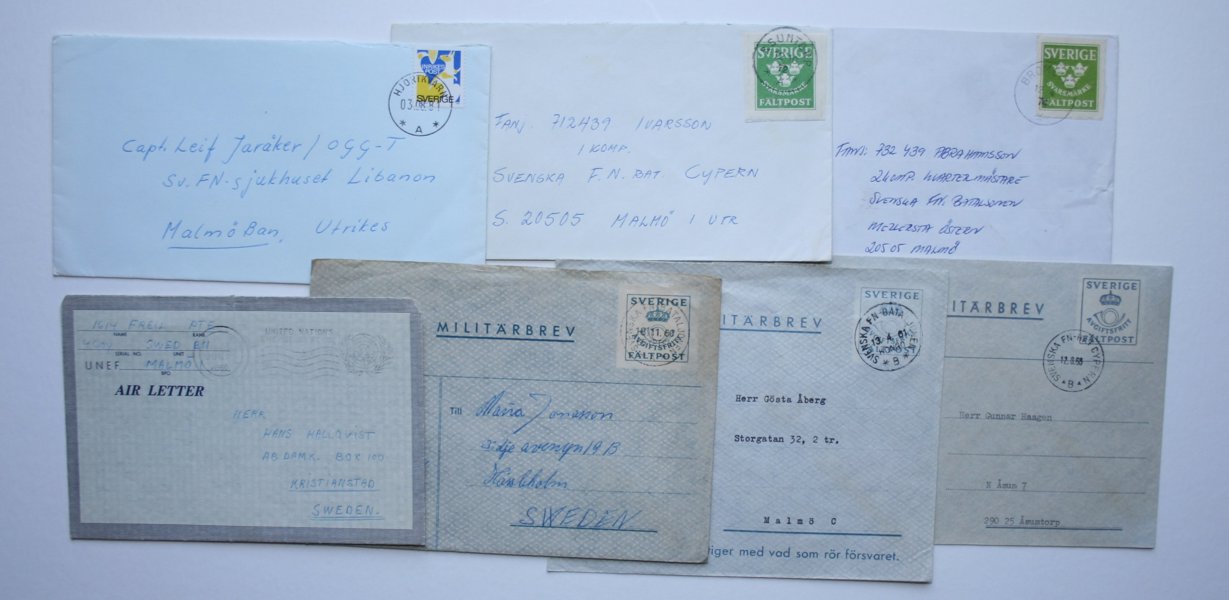 INRIKES
POST
SVERIGE
HJORTKVARN
03.08.81
* A *
Capt. Leif Jaråker/OGG-T
Sv. FN-sjukhuset Libanon
Malmö Ban, Utrikes
SVERIGE
SVARSMÄRKE
FÄLTPOST
TANJ. 712439 IVARSSON
1 KOMP.
SVENSKA F.N. BAT. CYPERN
S. 20505 MALMÖ 1 UTR
SVERIGE
SVARSMÄRKE
FÄLTPOST
TANJ: 732 439 ABRAHAMSSON
KVARTERMÄSTARE
SVENSKA FN. BATALJONEN
MELLERSTA ÖSTERN
20505 MALMÖ
1614 FREIJ PTE
NAME RANK
SWED BN
SERIAL NO. UNIT
UNEF MALMÖ
UNITED NATIONS
AIR LETTER
HERR
HANS HALLQVIST
BOX 100
KRISTIANSTAD
SWEDEN.
MILITÄRBREV
SVERIGE
11.60
AVGIFTSFRITT
FÄLTPOST
Till Maria Jonasson
avenyn 19 B
Hässleholm
SWEDEN
ITÄRBREV
SVERIGE
SVENSKA FN-BATALJ
13.4.61
* B *
Herr Gösta Åberg
Storgatan 32, 2 tr.
Malmö C
iger med vad som rör försvaret.
ITÄRBREV
SVERIGE
AVGIFTSFRITT
FÄLTPOST
SVENSKA FN-BAT CYPERN
* B *
Herr Gunnar Haagen
N Åsum 7
290 25 Åsumtorp